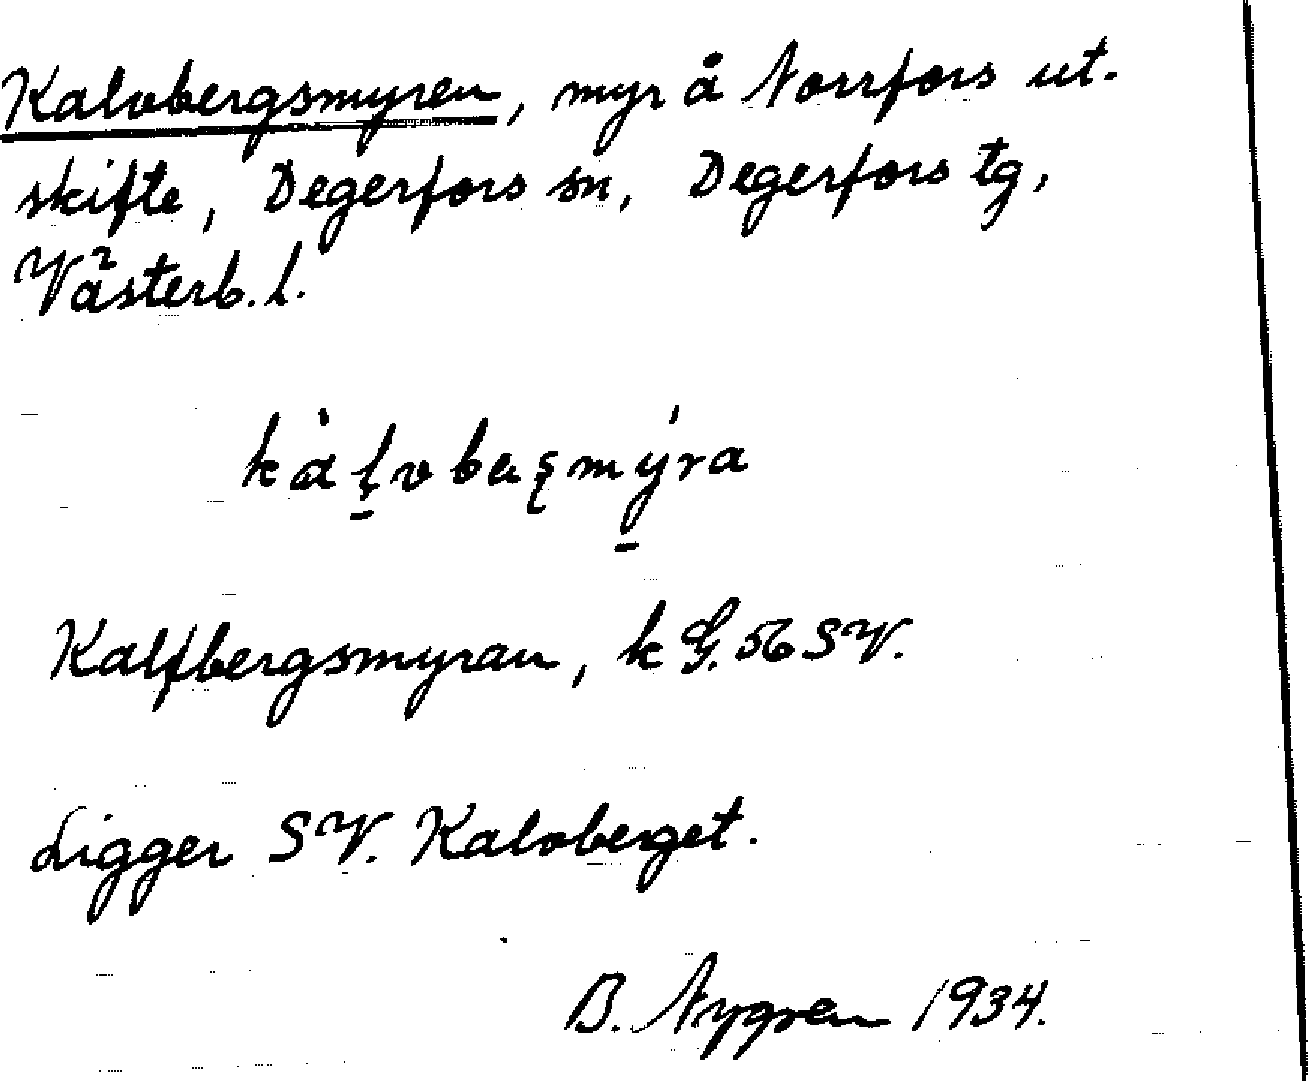 Kalvbergsmyren, myr å Norrfors ut-
skifte, Degerfors sn, Degerfors tg,
Västerb. l.
Kalfbergsmyran, k G. 56 SV.
Ligger SV. Kalvberget.
B. Nygren 1934.